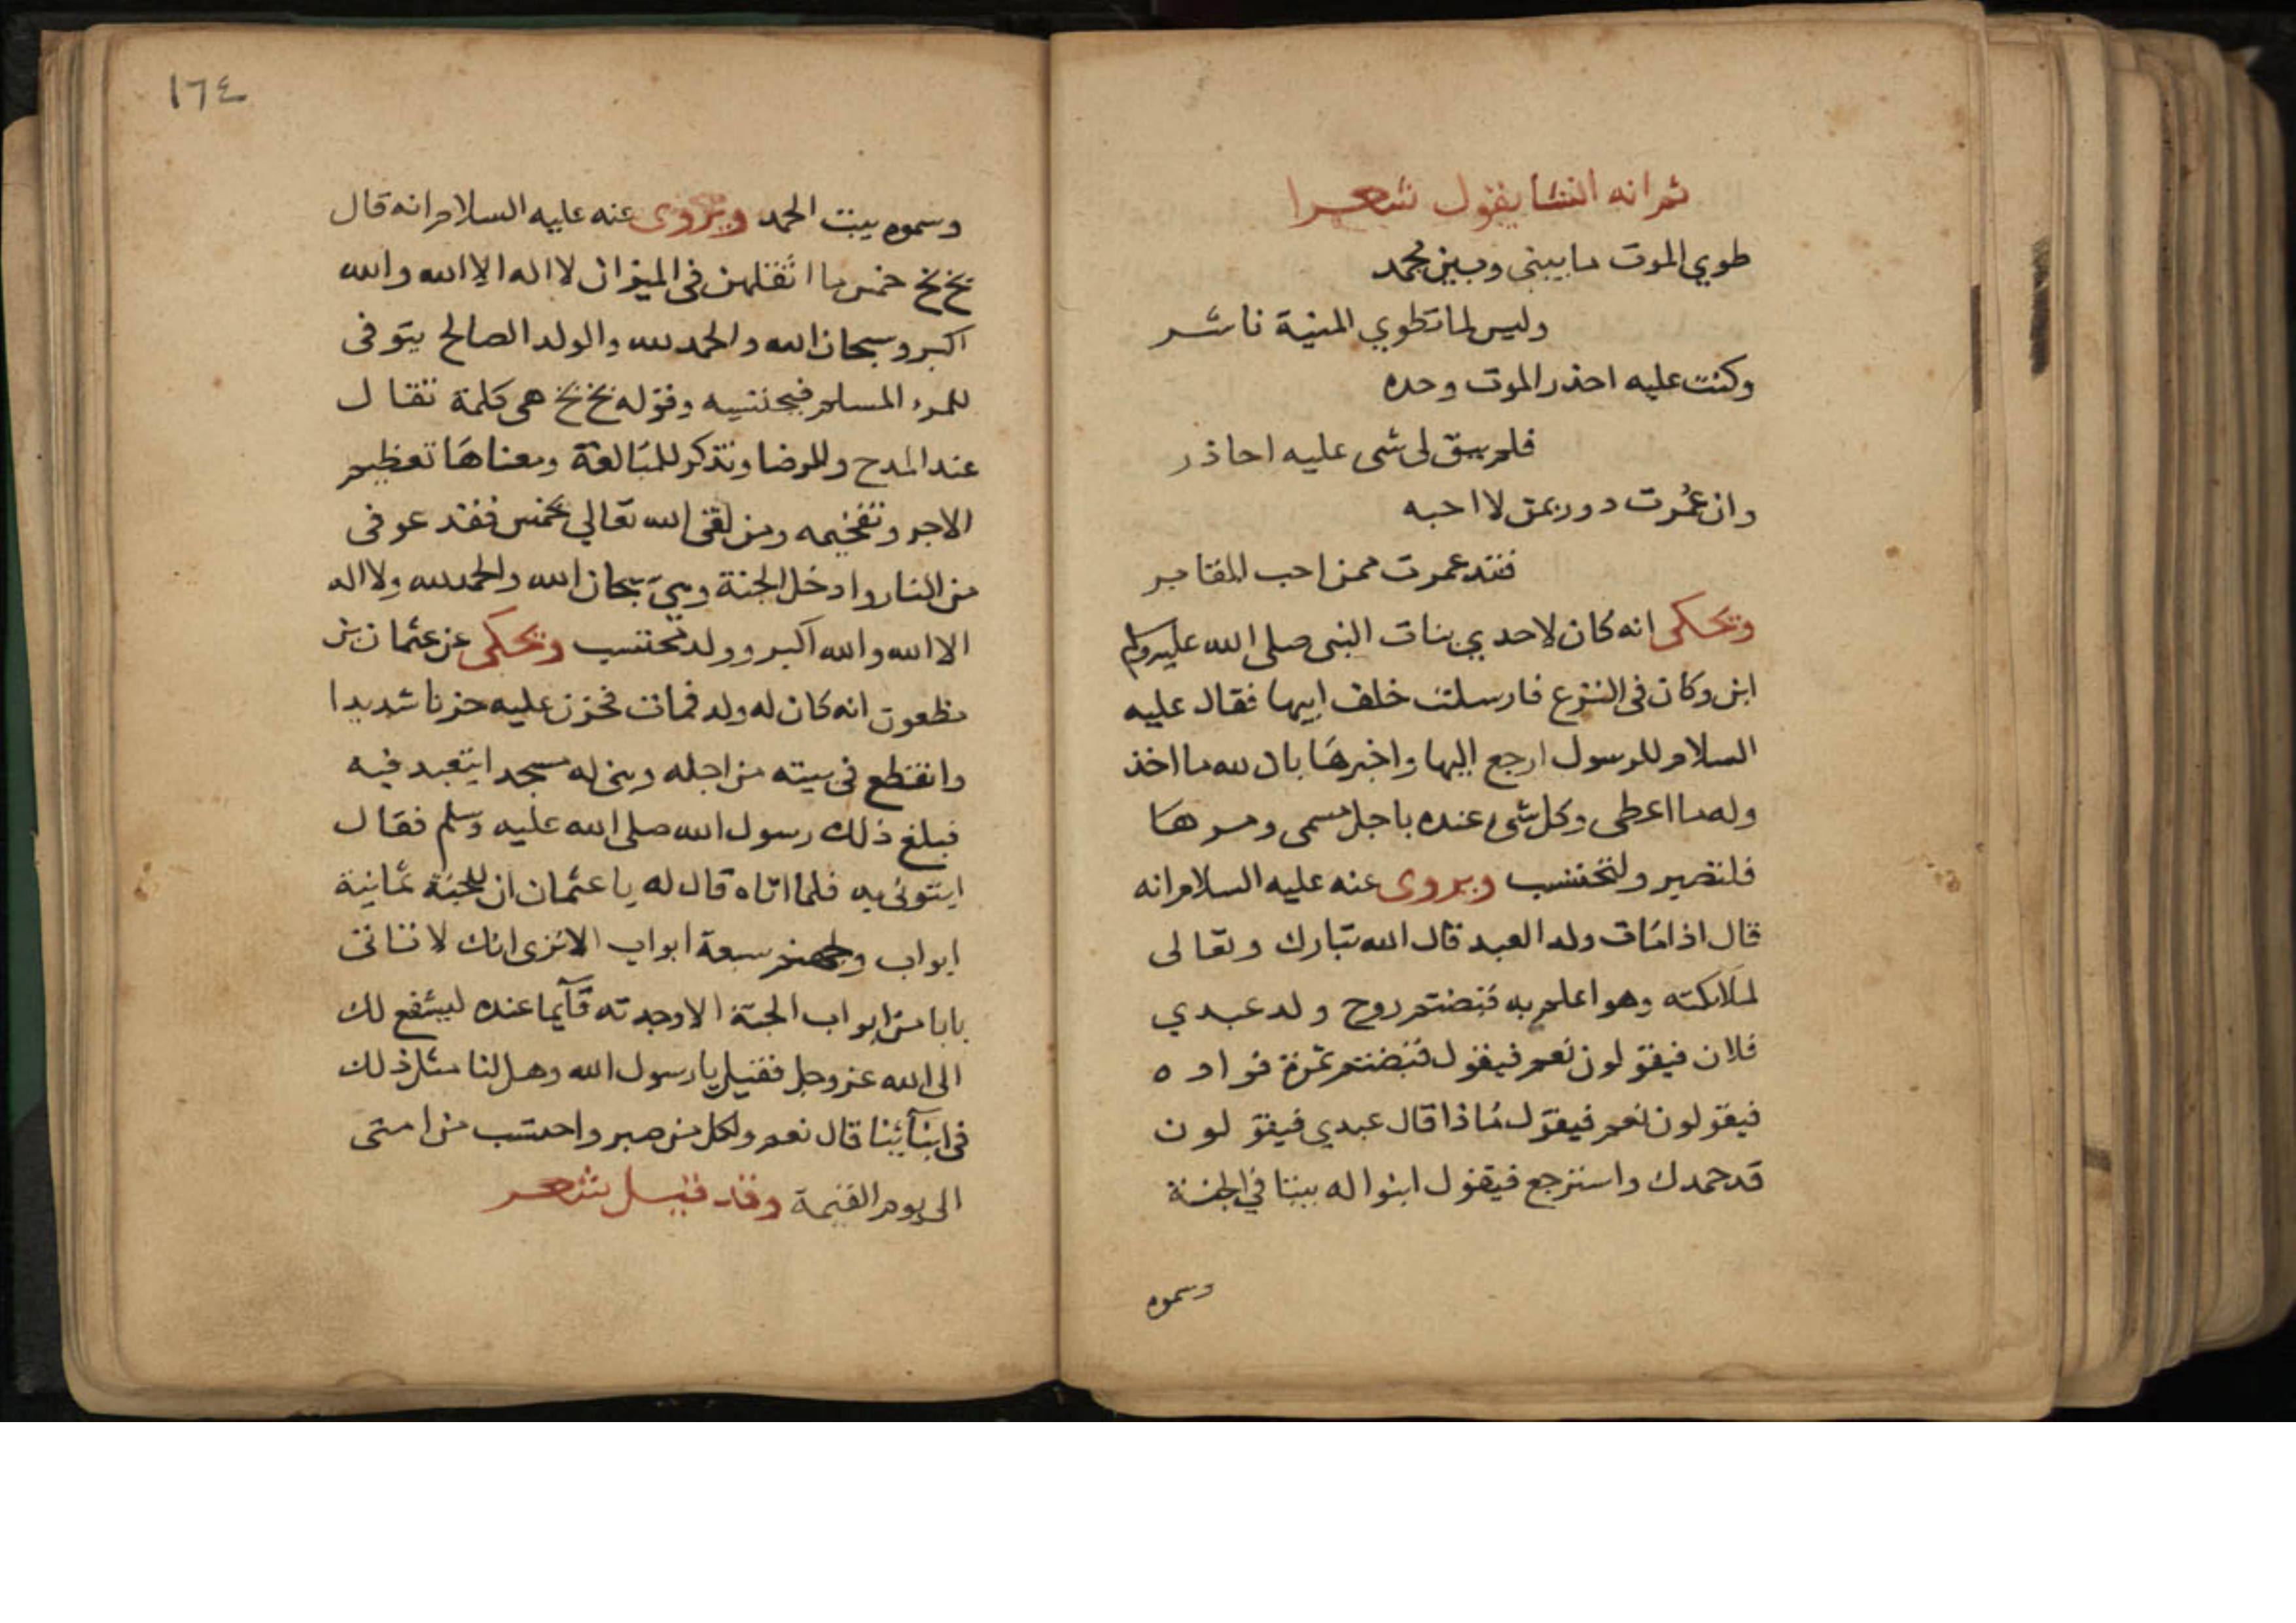 ثم انه انشا يقول شعرا
طوي الموت ما بيني وبين محمد
وليس لما تطوي المنية ناشر
وكنت عليه احذر الموت وحده
فلم يبق لي شي عليه احاذر
وان عُمرت دور بمن لا احبه
فقد عمرت ممن احب المقابر
ويحكى انه كان لاحدي بنات النبي صلى الله عليه وسلم
ابن وكان في النزع فارسلت خلف ابيها فقال عليه
السلام للرسول ارجع اليها واخبرها بان لله ما اخذ
وله ما اعطى وكل شيء عنده باجل مسمى ومرها
فلتصبر ولتحتسب ويروى عنه عليه السلام انه
قال اذا مات ولد العبد قال الله تبارك وتعالى
لملائكته وهو اعلم به قبضتم روح ولد عبدي
فلان فيقولون نعم فيقول قبضتم ثمرة فواده
فيقولون نعم فيقول ماذا قال عبدي فيقولون
قد حمدك واسترجع فيقول ابنوا له بيتا في الجنة
وسموه
١٦٤
وسموه بيت الحمد ويروى عنه عليه السلام انه قال
بخ بخ خمس ما اثقلهن في الميزان لا اله الا الله والله
اكبر وسبحان الله والحمد لله والولد الصالح يتوفى
للمرء المسلم فيحتسبه وقوله بخ بخ هي كلمة تقال
عند المدح وللرضا وتذكر للمبالغة ومعناها تعظيم
الاجر وتفخيمه ومن لقي الله تعالي بخمس فقد عوفى
من النار وادخل الجنة وهي سبحان الله والحمد لله ولا اله
الا الله والله اكبر وولد محتسب ويحكى عن عثمان بن
مظعون انه كان له ولد فمات فحزن عليه حزنا شديدا
وانقطع في بيته من اجله وبنى له مسجدا يتعبد فيه
فبلغ ذلك رسول الله صلى الله عليه وسلم فقال
ايتوني به فلما اتاه قال له يا عثمان ان للجنة ثمانية
ابواب ولجهنم سبعة ابواب الا ترى انك لا تاتى
بابا من ابواب الجنة الا وجدته قآيما عنده ليشفع لك
الى الله عز وجل فقيل يا رسول الله وهل لنا مثل ذلك
في ابنآئنا قال نعم ولكل من صبر واحتسب من امتى
الى يوم القيمة وقد قيل شعر